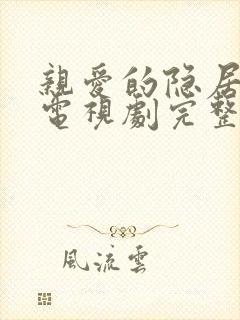 親愛的隐居
電視劇完整
風流雲